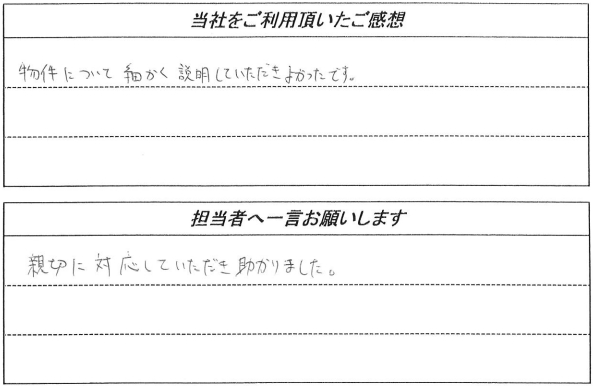 当社をご利用頂いたご感想
物件について細かく説明していただきよかったです。
担当者へ一言お願いします
親切に対応していただき助かりました。